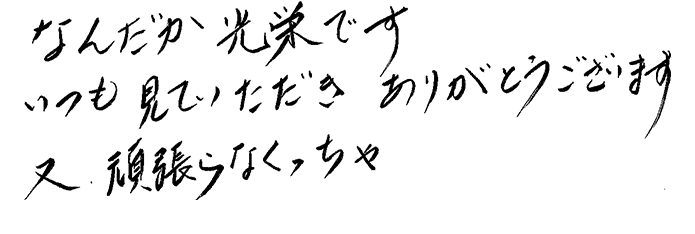 なんだか光栄です
いつも見ていただき ありがとうございます
又、頑張らなくっちゃ